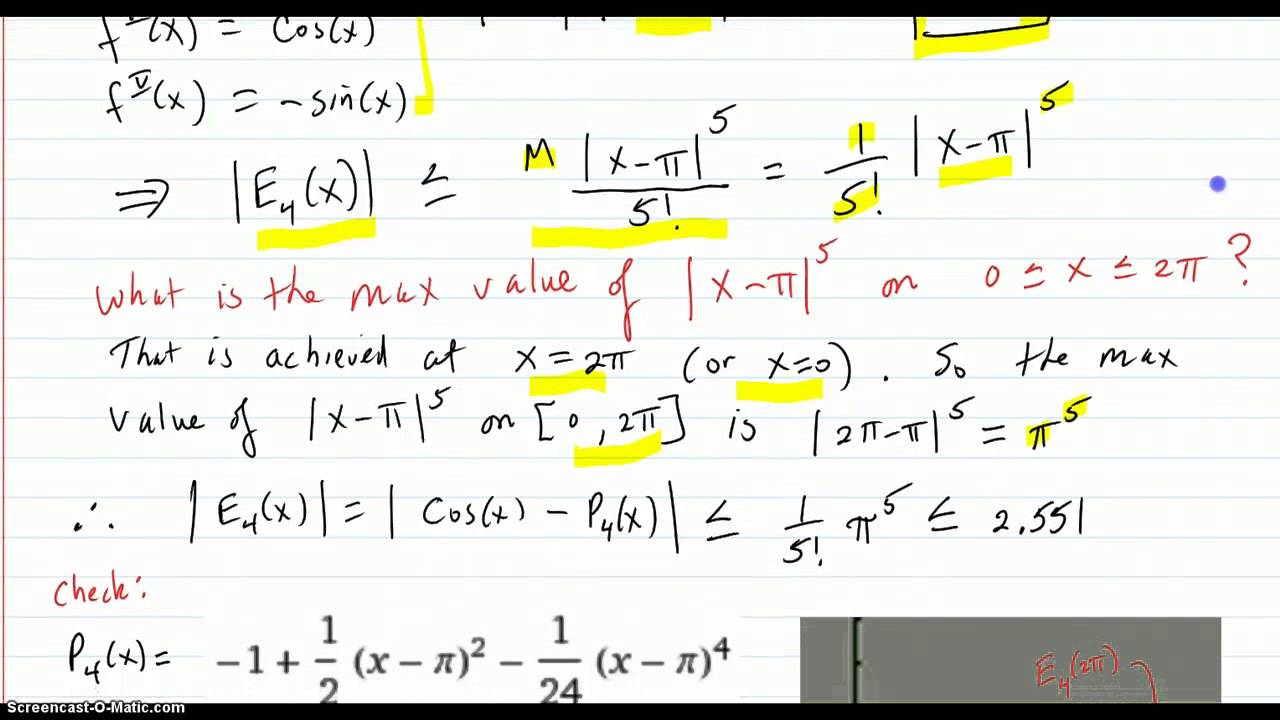 f^IV(x) = Cos(x)
f^V(x) = -sin(x)
⇒ |E₄(x)| ≤ M |x-π|⁵ / 5! = 1/5! |x-π|⁵
What is the max value of |x-π|⁵ on 0 ≤ x ≤ 2π ?
That is achieved at x = 2π (or x=0). So the max
value of |x-π|⁵ on [0, 2π] is |2π-π|⁵ = π⁵
∴ |E₄(x)| = | Cos(x) - P₄(x)| ≤ 1/5! π⁵ ≤ 2.551
Check:
P₄(x) = -1 + 1/2 (x - π)² - 1/24 (x - π)⁴
E₄(2π)
Screencast-O-Matic.com